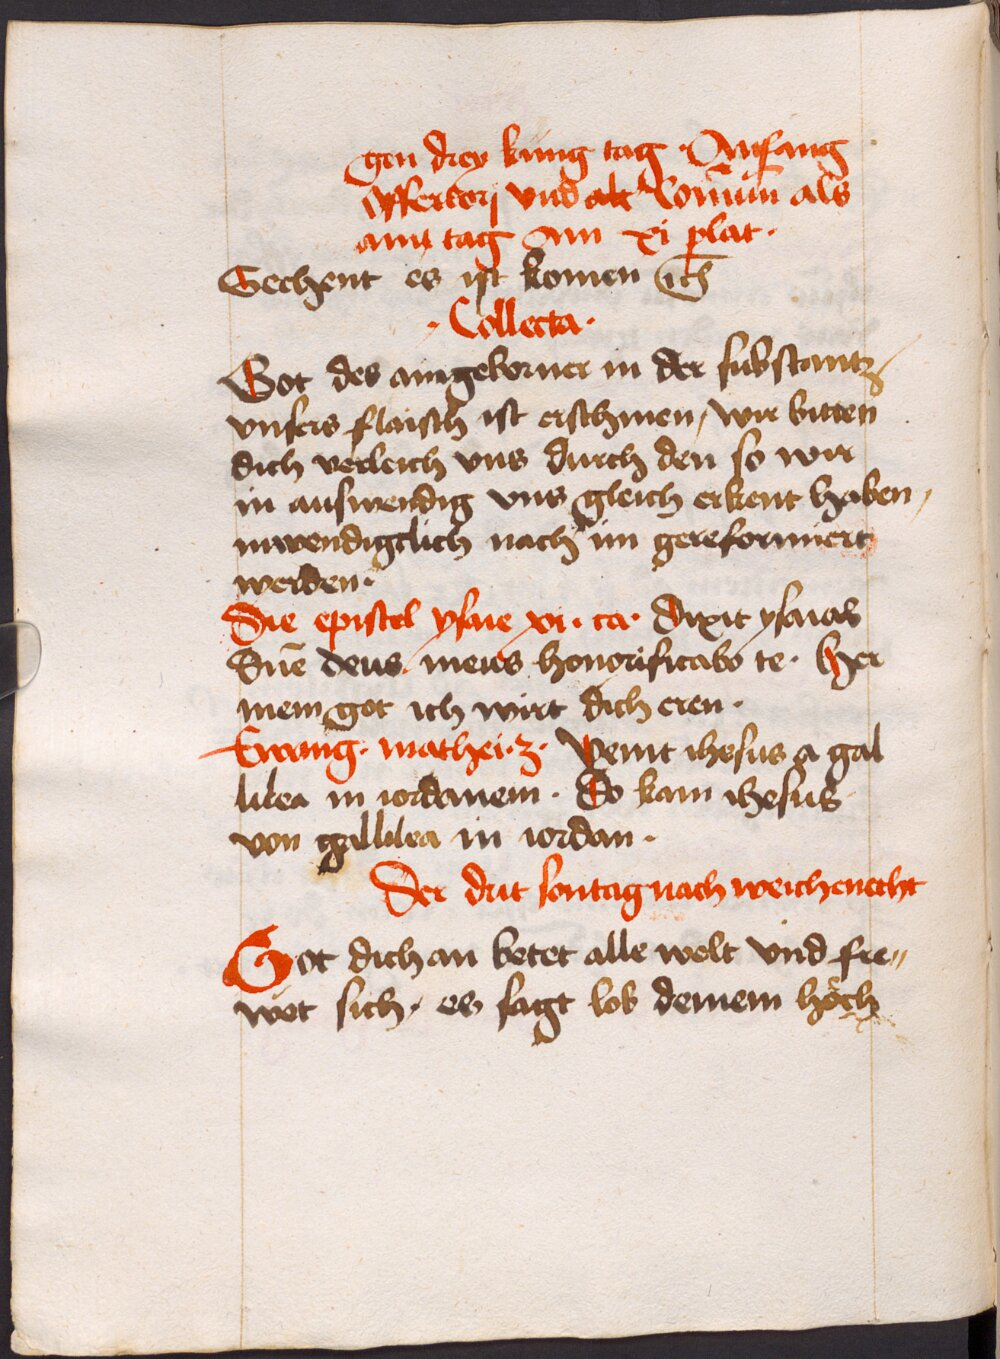 gen drey kung tag · Anfang
offertorj vnd alt Com̄um als
am tag am xi plat ·
Sechent es ist komen ꝛc̄
· Collecta ·
Got des aingeborner in der substantz /
vnsers flaisch ist erschinen / wir bitten
dich verleich vns durch den so wir
in auswendig vns gleich erkent haben /
inwendigclich nach im gereformiert
werden ·
Die epistel ysaie xi · ca · Dixit ysaias
Dn̄e deus meus honorificabo te · Her
mein got ich wirt dich eren ·
Ewang · mathei · 3 · Venit ihesus a gal
lilea in iordanem · Do kam ihesus
von gallilea in iordan ·
Der drit sontag nach weichenecht
Got dich an betet alle welt vnd fre//
wet sich · es sagt lob deinem höch